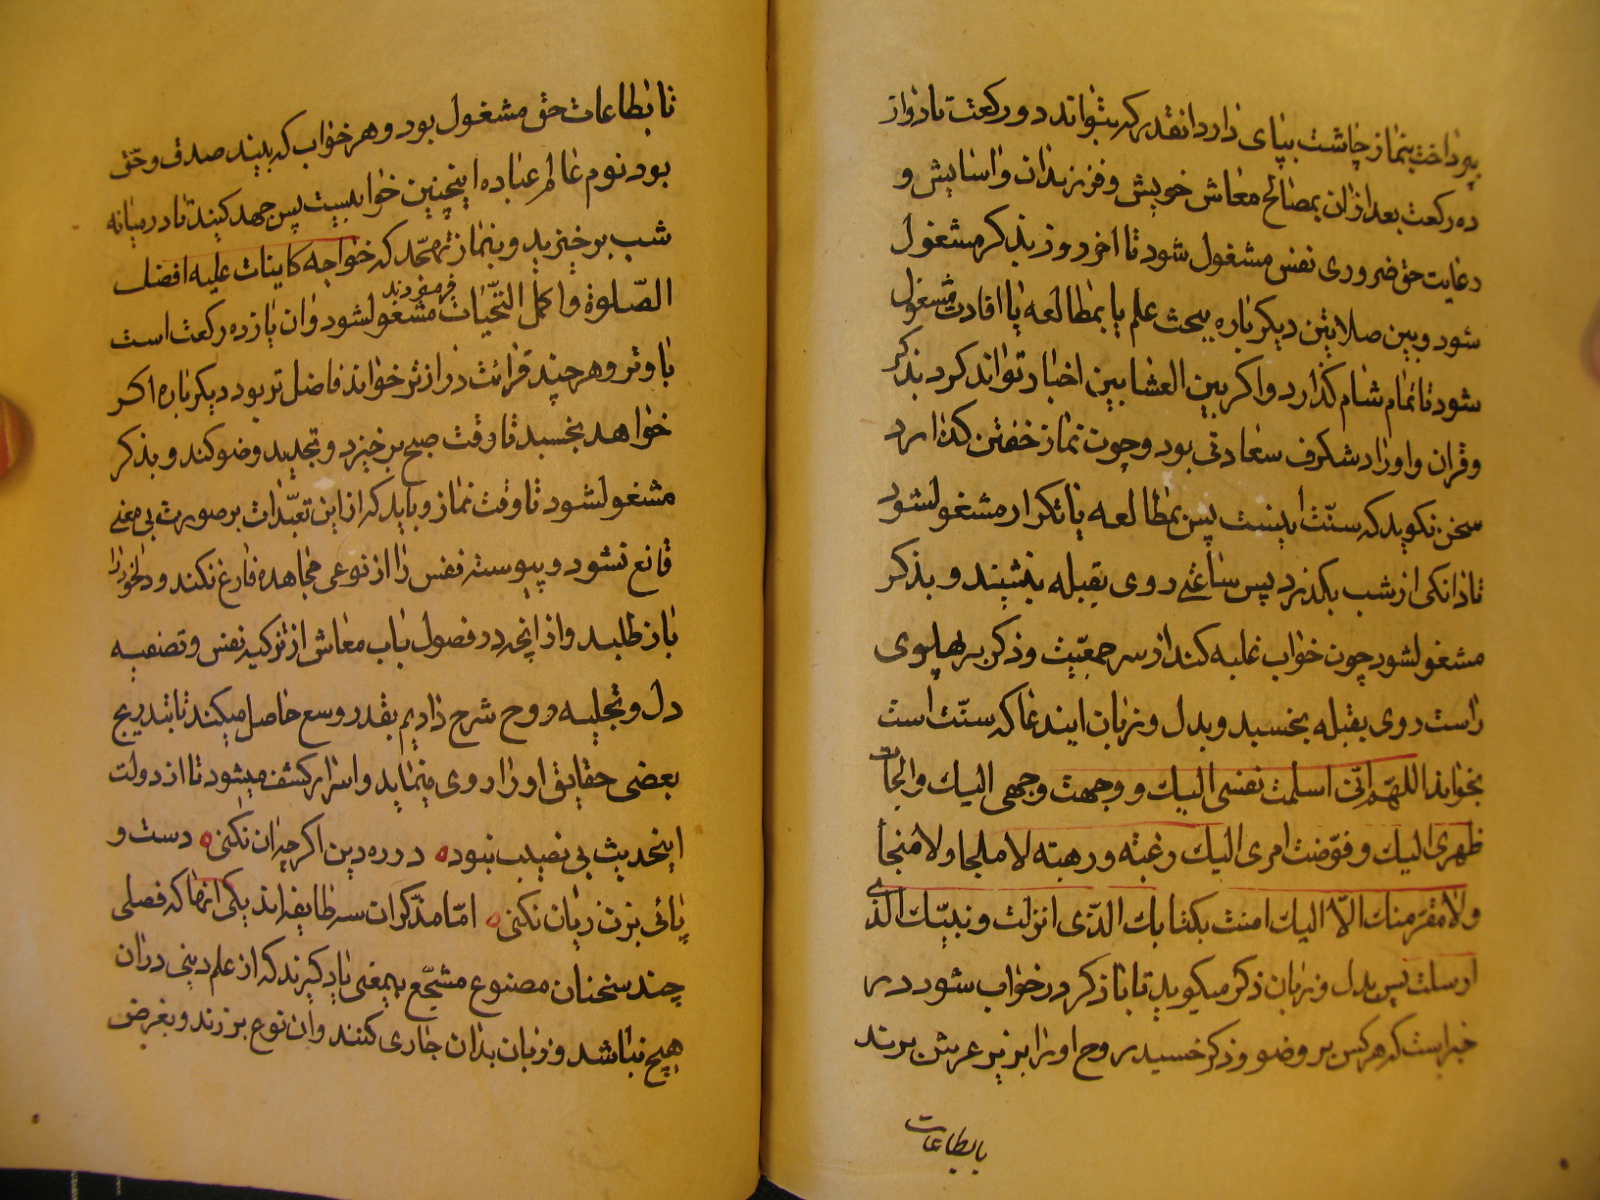 پرداخت بنماز چاشت بپای دارد انقدر که بتواند دو رکعت تا دواز
ده رکعت بعد ازان بمصالح معاش خویش و فرزندان و اسایش و
رعایت حق ضروری نفس مشغول شود تا اخر روز بذکر مشغول
شود و بین صلاتین دیکر باره ببحث علم یا بمطالعه یا افادت مشغول
شود تا نماز شام کذارد و اکر بین العشایین اخبار تواند کرد بذکر
و قران و اوراد شکرف سعادتی بود و چون نماز خفتن کذارد
سخن نکوید که سنت اینست پس بمطالعه یا تکرار مشغول شود
تا دانکی از شب بکذرد پس ساعتی روی بقبله بنشیند و بذکر
مشغول شود چون خواب غلبه کند از سر جمعیت و ذکر بر پهلوی
راست روی بقبله بخسبد و بدل و زبان این دعا که سنت است
بخواند اللهم انی اسلمت نفسی الیک و وجهت وجهی الیک و الجات
ظهری الیک و فوضت امری الیک رغبته و رهبته لا ملجا و لا منجا
و لا مفر منک الا الیک امنت بکتابک الذی انزلت و نبیک الذی
ارسلت پس بدل و زبان ذکر میکوید تا با ذکر در خواب شود در
خبر است که هر کس بر وضو و ذکر خسبد روح او را بزیر عرش برند
بابطاعات
تا بطاعات حق مشغول بود و هر خواب که بیند صدق و حق
بود نوم عالم عباده اینچنین خوابیست پس جهد کیند تا در میانه
شب برخیزید و بنماز تهجد که خواجه کاینات علیه افضل
الصلوة و اکمل التحیات فرموده‌ند مشغول شود و ان یازده رکعت است
با وتر و هر چند قرائت درازتر خواند فاضل تر بود دیکر باره اکر
خواهد بخسبد تا وقت صبح برخیزد و تجدید وضو کند و بذکر
مشغول شود تا وقت نماز و باید که از این تعبدات بر صورت بی معنی
قانع نشود و پیوسته نفس را از نوعی مجاهده فارغ نکند و دلخود را
باز طلبد و از انچه در فصول باب معاش از تزکیه نفس و تصفیه
دل و تجلیه روح شرح دادیم بقدر وسع حاصل میکند تا بتدریج
بعضی حقایق او را روی بنماید و اسرار کشف میشود تا از دولت
اینحدیث بی نصیب نبود ه در ره دین اکر چه ان نکنی ه دست و
پائی بزن زیان نکنی ه اما مذکران سه طایفه اند یکی انها که فصلی
چند سخنان مصنوع مسجع بیمعنی یاد کیرند که از علم دینی دران
هیچ نباشد و زبان بدان جاری کنند و ان نوع برزند و بغرض